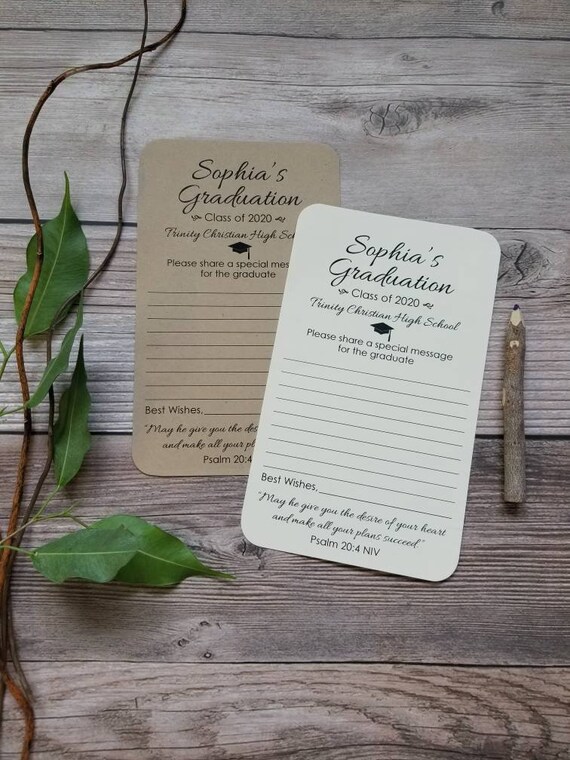 Sophia's
Graduation
Class of 2020
Trinity Christian High
Please share a special
for the graduate
Best Wishes,
"May he give you the
and make all your
Psalm 20:4
Sophia's
Graduation
Class of 2020
Trinity Christian High School
Please share a special message
for the graduate
Best Wishes,
"May he give you the desire of your heart
and make all your plans succeed"
Psalm 20:4 NIV